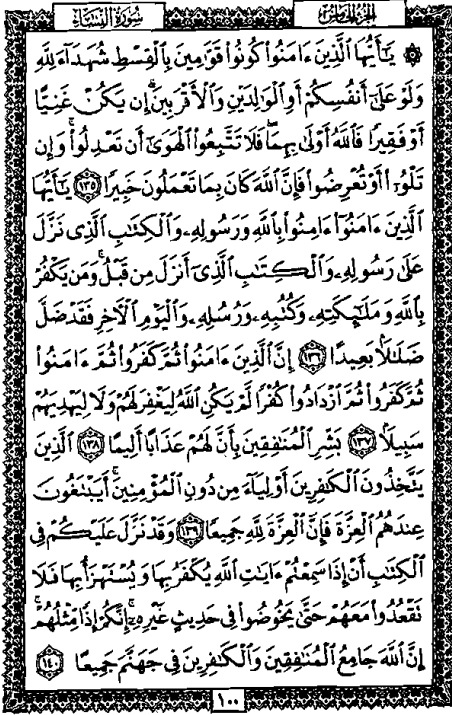 الجزء الخامس
سورة النساء
۞ يَـٰٓأَيُّهَا ٱلَّذِينَ ءَامَنُوا۟ كُونُوا۟ قَوَّٰمِينَ بِٱلْقِسْطِ شُهَدَآءَ لِلَّهِ
وَلَوْ عَلَىٰٓ أَنفُسِكُمْ أَوِ ٱلْوَٰلِدَيْنِ وَٱلْأَقْرَبِينَ ۚ إِن يَكُنْ غَنِيًّا
أَوْ فَقِيرًا فَٱللَّهُ أَوْلَىٰ بِهِمَا ۖ فَلَا تَتَّبِعُوا۟ ٱلْهَوَىٰٓ أَن تَعْدِلُوا۟ ۚ وَإِن
تَلْوُۥٓا۟ أَوْ تُعْرِضُوا۟ فَإِنَّ ٱللَّهَ كَانَ بِمَا تَعْمَلُونَ خَبِيرًا ١٣٥ يَـٰٓأَيُّهَا
ٱلَّذِينَ ءَامَنُوٓا۟ ءَامِنُوا۟ بِٱللَّهِ وَرَسُولِهِۦ وَٱلْكِتَـٰبِ ٱلَّذِى نَزَّلَ
عَلَىٰ رَسُولِهِۦ وَٱلْكِتَـٰبِ ٱلَّذِىٓ أَنزَلَ مِن قَبْلُ ۚ وَمَن يَكْفُرْ
بِٱللَّهِ وَمَلَـٰٓئِكَتِهِۦ وَكُتُبِهِۦ وَرُسُلِهِۦ وَٱلْيَوْمِ ٱلْـَٔاخِرِ فَقَدْ ضَلَّ
ضَلَـٰلًۢا بَعِيدًا ١٣٦ إِنَّ ٱلَّذِينَ ءَامَنُوا۟ ثُمَّ كَفَرُوا۟ ثُمَّ ءَامَنُوا۟
ثُمَّ كَفَرُوا۟ ثُمَّ ٱزْدَادُوا۟ كُفْرًا لَّمْ يَكُنِ ٱللَّهُ لِيَغْفِرَ لَهُمْ وَلَا لِيَهْدِيَهُمْ
سَبِيلًۢا ١٣٧ بَشِّرِ ٱلْمُنَـٰفِقِينَ بِأَنَّ لَهُمْ عَذَابًا أَلِيمًا ١٣٨ ٱلَّذِينَ
يَتَّخِذُونَ ٱلْكَـٰفِرِينَ أَوْلِيَآءَ مِن دُونِ ٱلْمُؤْمِنِينَ ۚ أَيَبْتَغُونَ
عِندَهُمُ ٱلْعِزَّةَ فَإِنَّ ٱلْعِزَّةَ لِلَّهِ جَمِيعًا ١٣٩ وَقَدْ نَزَّلَ عَلَيْكُمْ فِى
ٱلْكِتَـٰبِ أَنْ إِذَا سَمِعْتُمْ ءَايَـٰتِ ٱللَّهِ يُكْفَرُ بِهَا وَيُسْتَهْزَأُ بِهَا فَلَا
تَقْعُدُوا۟ مَعَهُمْ حَتَّىٰ يَخُوضُوا۟ فِى حَدِيثٍ غَيْرِهِۦٓ ۚ إِنَّكُمْ إِذًا مِّثْلُهُمْ ۗ
إِنَّ ٱللَّهَ جَامِعُ ٱلْمُنَـٰفِقِينَ وَٱلْكَـٰفِرِينَ فِى جَهَنَّمَ جَمِيعًا ١٤٠
١٠٠